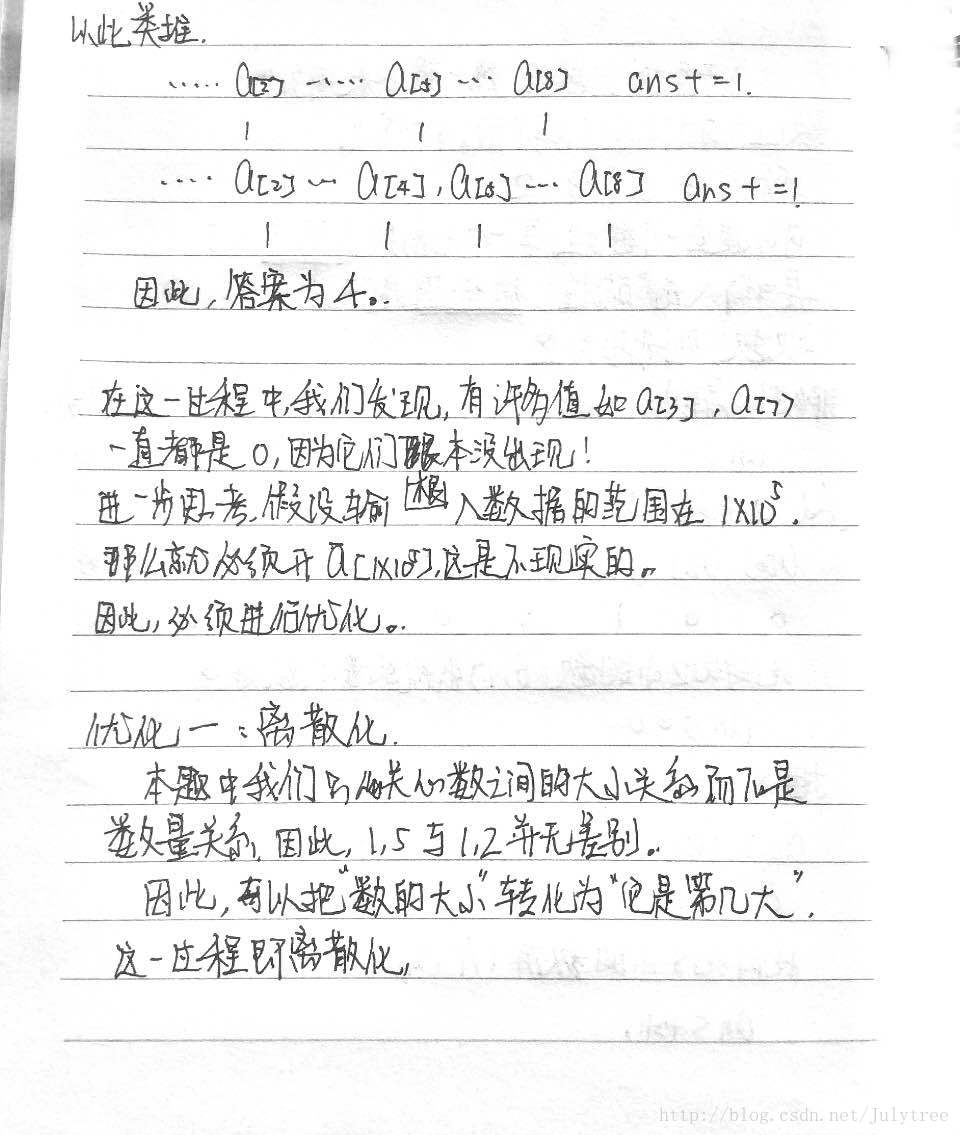 以此类推.
..... a[2] ..... a[4] ... a[8] ans+=1.
1 1 1
.... a[2] ... a[4], a[6] ... a[8] ans+=1.
1 1 1 1
因此,答案为4。
在这一过程中,我们发现,有许多值如a[3],a[7]
一直都是0,因为它们根本没出现!
进一步思考,假设输入数据的范围在1X10^5.
那么就必须开a[1X10^5],这是不现实的。
因此,必须进行优化。
优化一:离散化.
本题中我们只关心数之间的大小关系而不是
数量关系,因此,1,5与1,2并无差别。
因此,可以把"数的大小"转化为"它是第几大".
这一过程即离散化,
http://blog.csdn.net/Julytree